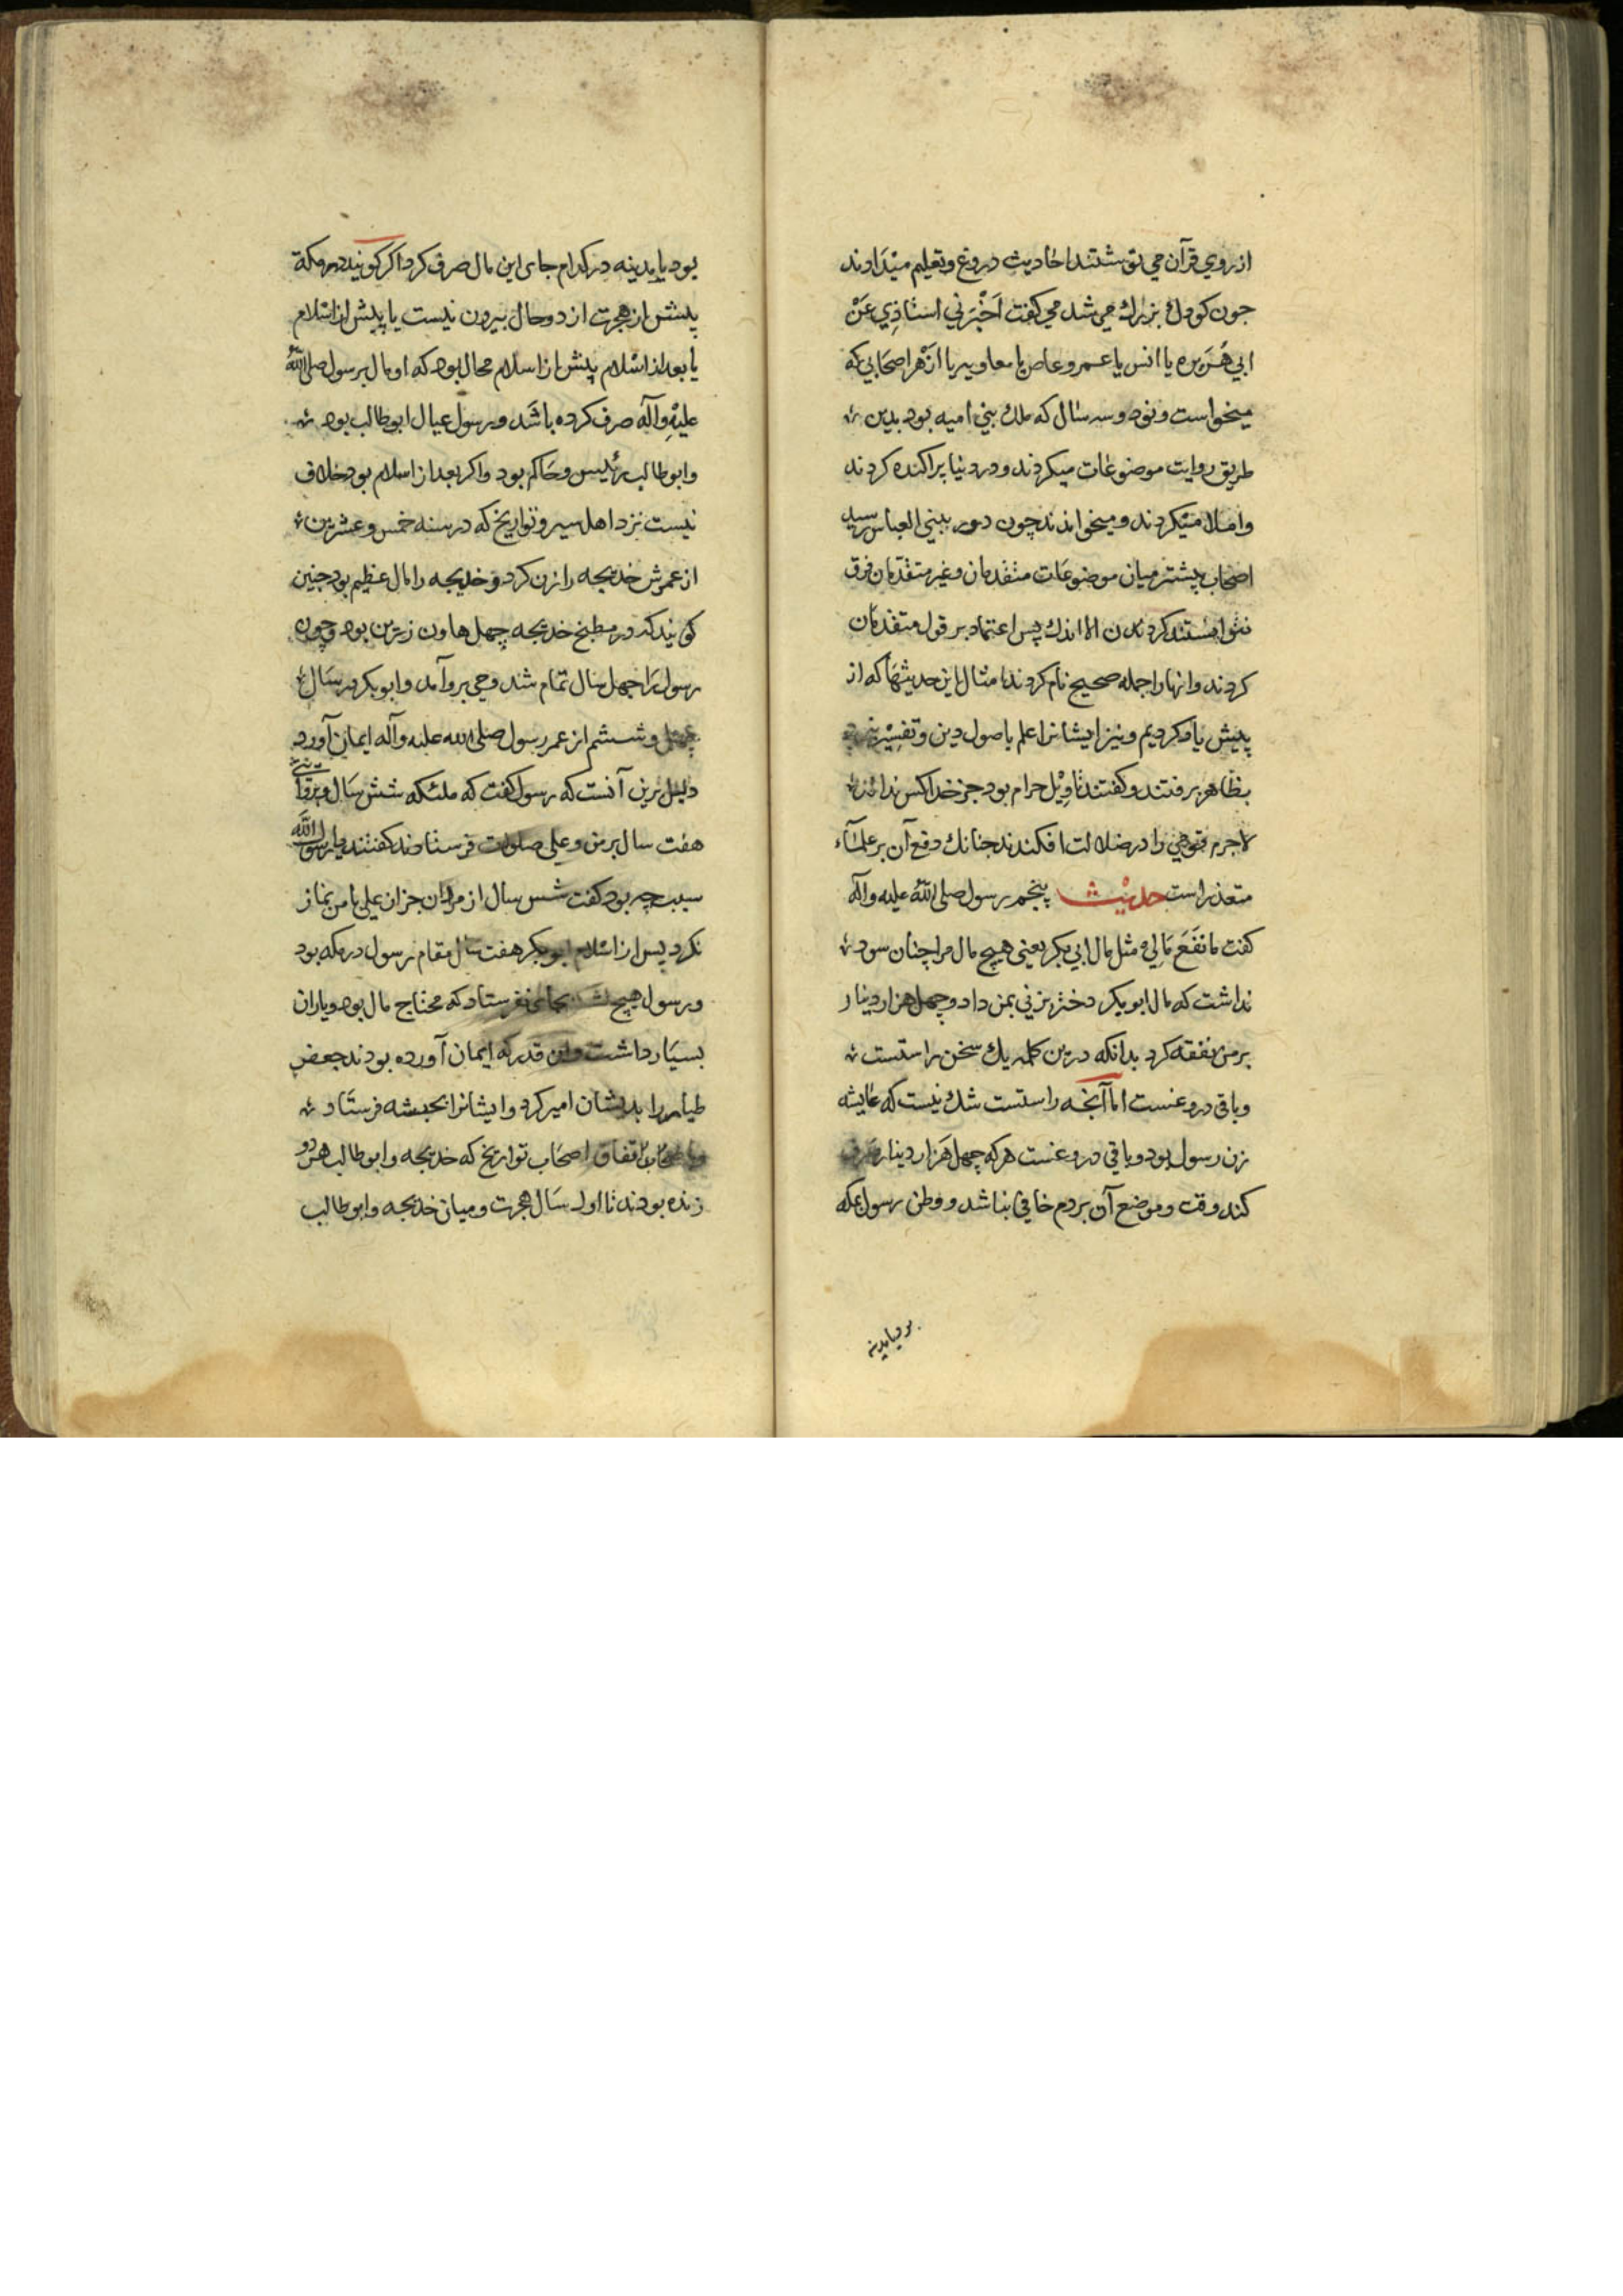 از روی قرآن می نوشتند احادیث دروغ و تعلیم میدادند
جون کودك بزرك می شد می کفت اَخْبَرَنی استاذِی عَنْ
ابی هُرَیره یا انس یا عمرو عاص یا معاویه یا از هر اصحابی که
میخواست و نود و سه سال که ملك بنی امیه بود بدین
طریق روایت موضوعات میکردند و در دنیا پراکنده کردند
و املا میکردند و میخواندند چون دور ببنی العباس رسید
اصحاب پیشتر میان موضوعات متقدمان و غیر متقدمان فرق
نتوانستند کردن الا اندك پس اعتماد بر قول متقدمان
کردند و انها را جمله صحیح نام کردند امثال این حدیثها که از
پیش یاد کردیم و نیز ایشانرا علم باصول دین و تفسیر
بظاهر برفتند و کفتند تاویل حرام بود جز خدا کس نداند
لاجرم قومی را در ضلالت افکندند جنانك دفع آن بر علماء
متعذر است حدیث پنجم رسول صلی الله علیه وآله
کفت ما نَفَعَ مَالِی مثل مال ابی بکر یعنی هیچ مال مرا چنان سود
نداشت که مال ابوبکر دختر بزنی بمن داد و چهل هزار دینار
بر من نفقه کرد بدانکه درین کلمه یك سخن راستست
و باقی دروغست اما آنجه راستست شك نیست که عایشه
زن رسول بود و باقی دروغست هر که چهل هزار دینار صرف
کند وقت و موضع آن بردم خافی نباشد و وطن رسول بمکه
بود یا بمدینه
بود یا بمدینه در کدام جای این مال صرف کرد اکر کویند در مکة
پیش از هجرت از دو حال بیرون نیست یا پیش از اسلام
یا بعد از اسلام پیش از اسلام محال بود که او مال بر رسول صلی الله
علیه وآله صرف کرده باشد و رسول عیال ابوطالب بود
و ابوطالب رئیس و حاکم بود و اکر بعد از اسلام بود خلاف
نیست نزد اهل سیر و تواریخ که در سنه خمس و عشرین
از عمرش خدیجه را زن کرد و خدیجه را مال عظیم بود چنین
کویند که در مطبخ خدیجه چهل هاون زرین بود و چون
رسول را جهل سال تمام شد وحی برو آمد و ابوبکر در سال
چهل و ششم از عمر رسول صلی الله علیه وآله ایمان آورد
دلیل برین آنست که رسول کفت که ملئکه شش سال و بروایتی
هفت سال بر من و علی صلوات فرستادند کفتند یا رسول الله
سبب چه بود کفت شش سال از مردان جز از علی با من نماز
نکرد پس از اسلام ابوبکر هفت سال مقام رسول در مکه بود
و رسول هیچ لشکر بجائی نفرستاد که محتاج مال بود و یاران
بسیار داشت و این قدر که ایمان آورده بودند جعفر
طیار را بدیشان امیر کرد و ایشانرا بحبشه فرستاد
اتفاق اصحاب تواریخ که خدیجه و ابوطالب هر دو
زنده بودند تا اول سال هجرت و میان خدیجه و ابوطالب